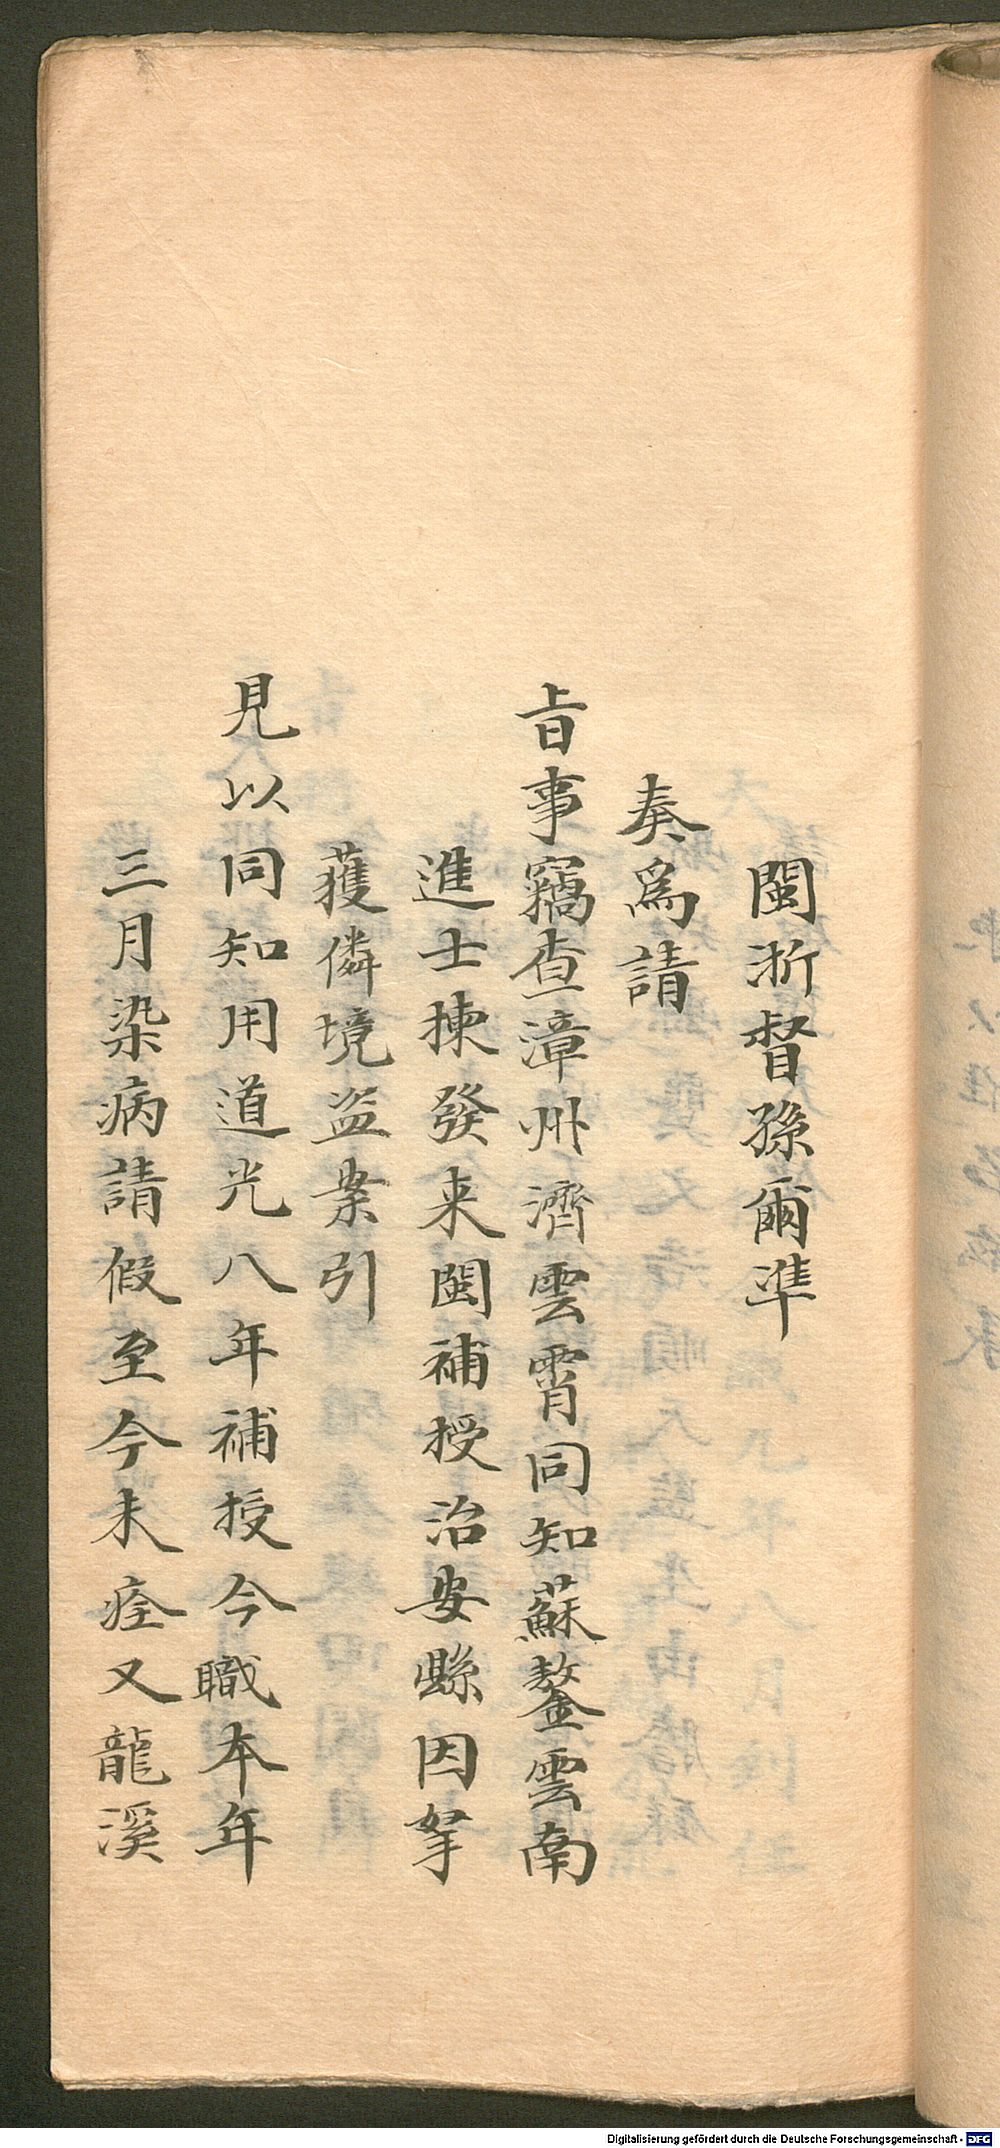 閩浙督孫爾準
奏爲請
旨事竊查漳州濟雲霄同知蘇鏊雲南
進士揀發来閩補授治安縣因拏
獲僯境盗案引
見以同知用道光八年補授今職本年
三月染病請假至今未痊又龍溪
Digitalisierung gefördert durch die Deutsche Forschungsgemeinschaft - DFG